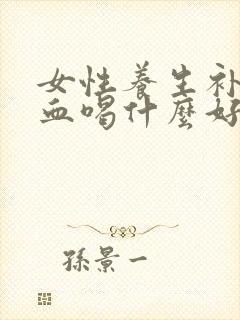 女性養生补
血喝什麼好
孫景一